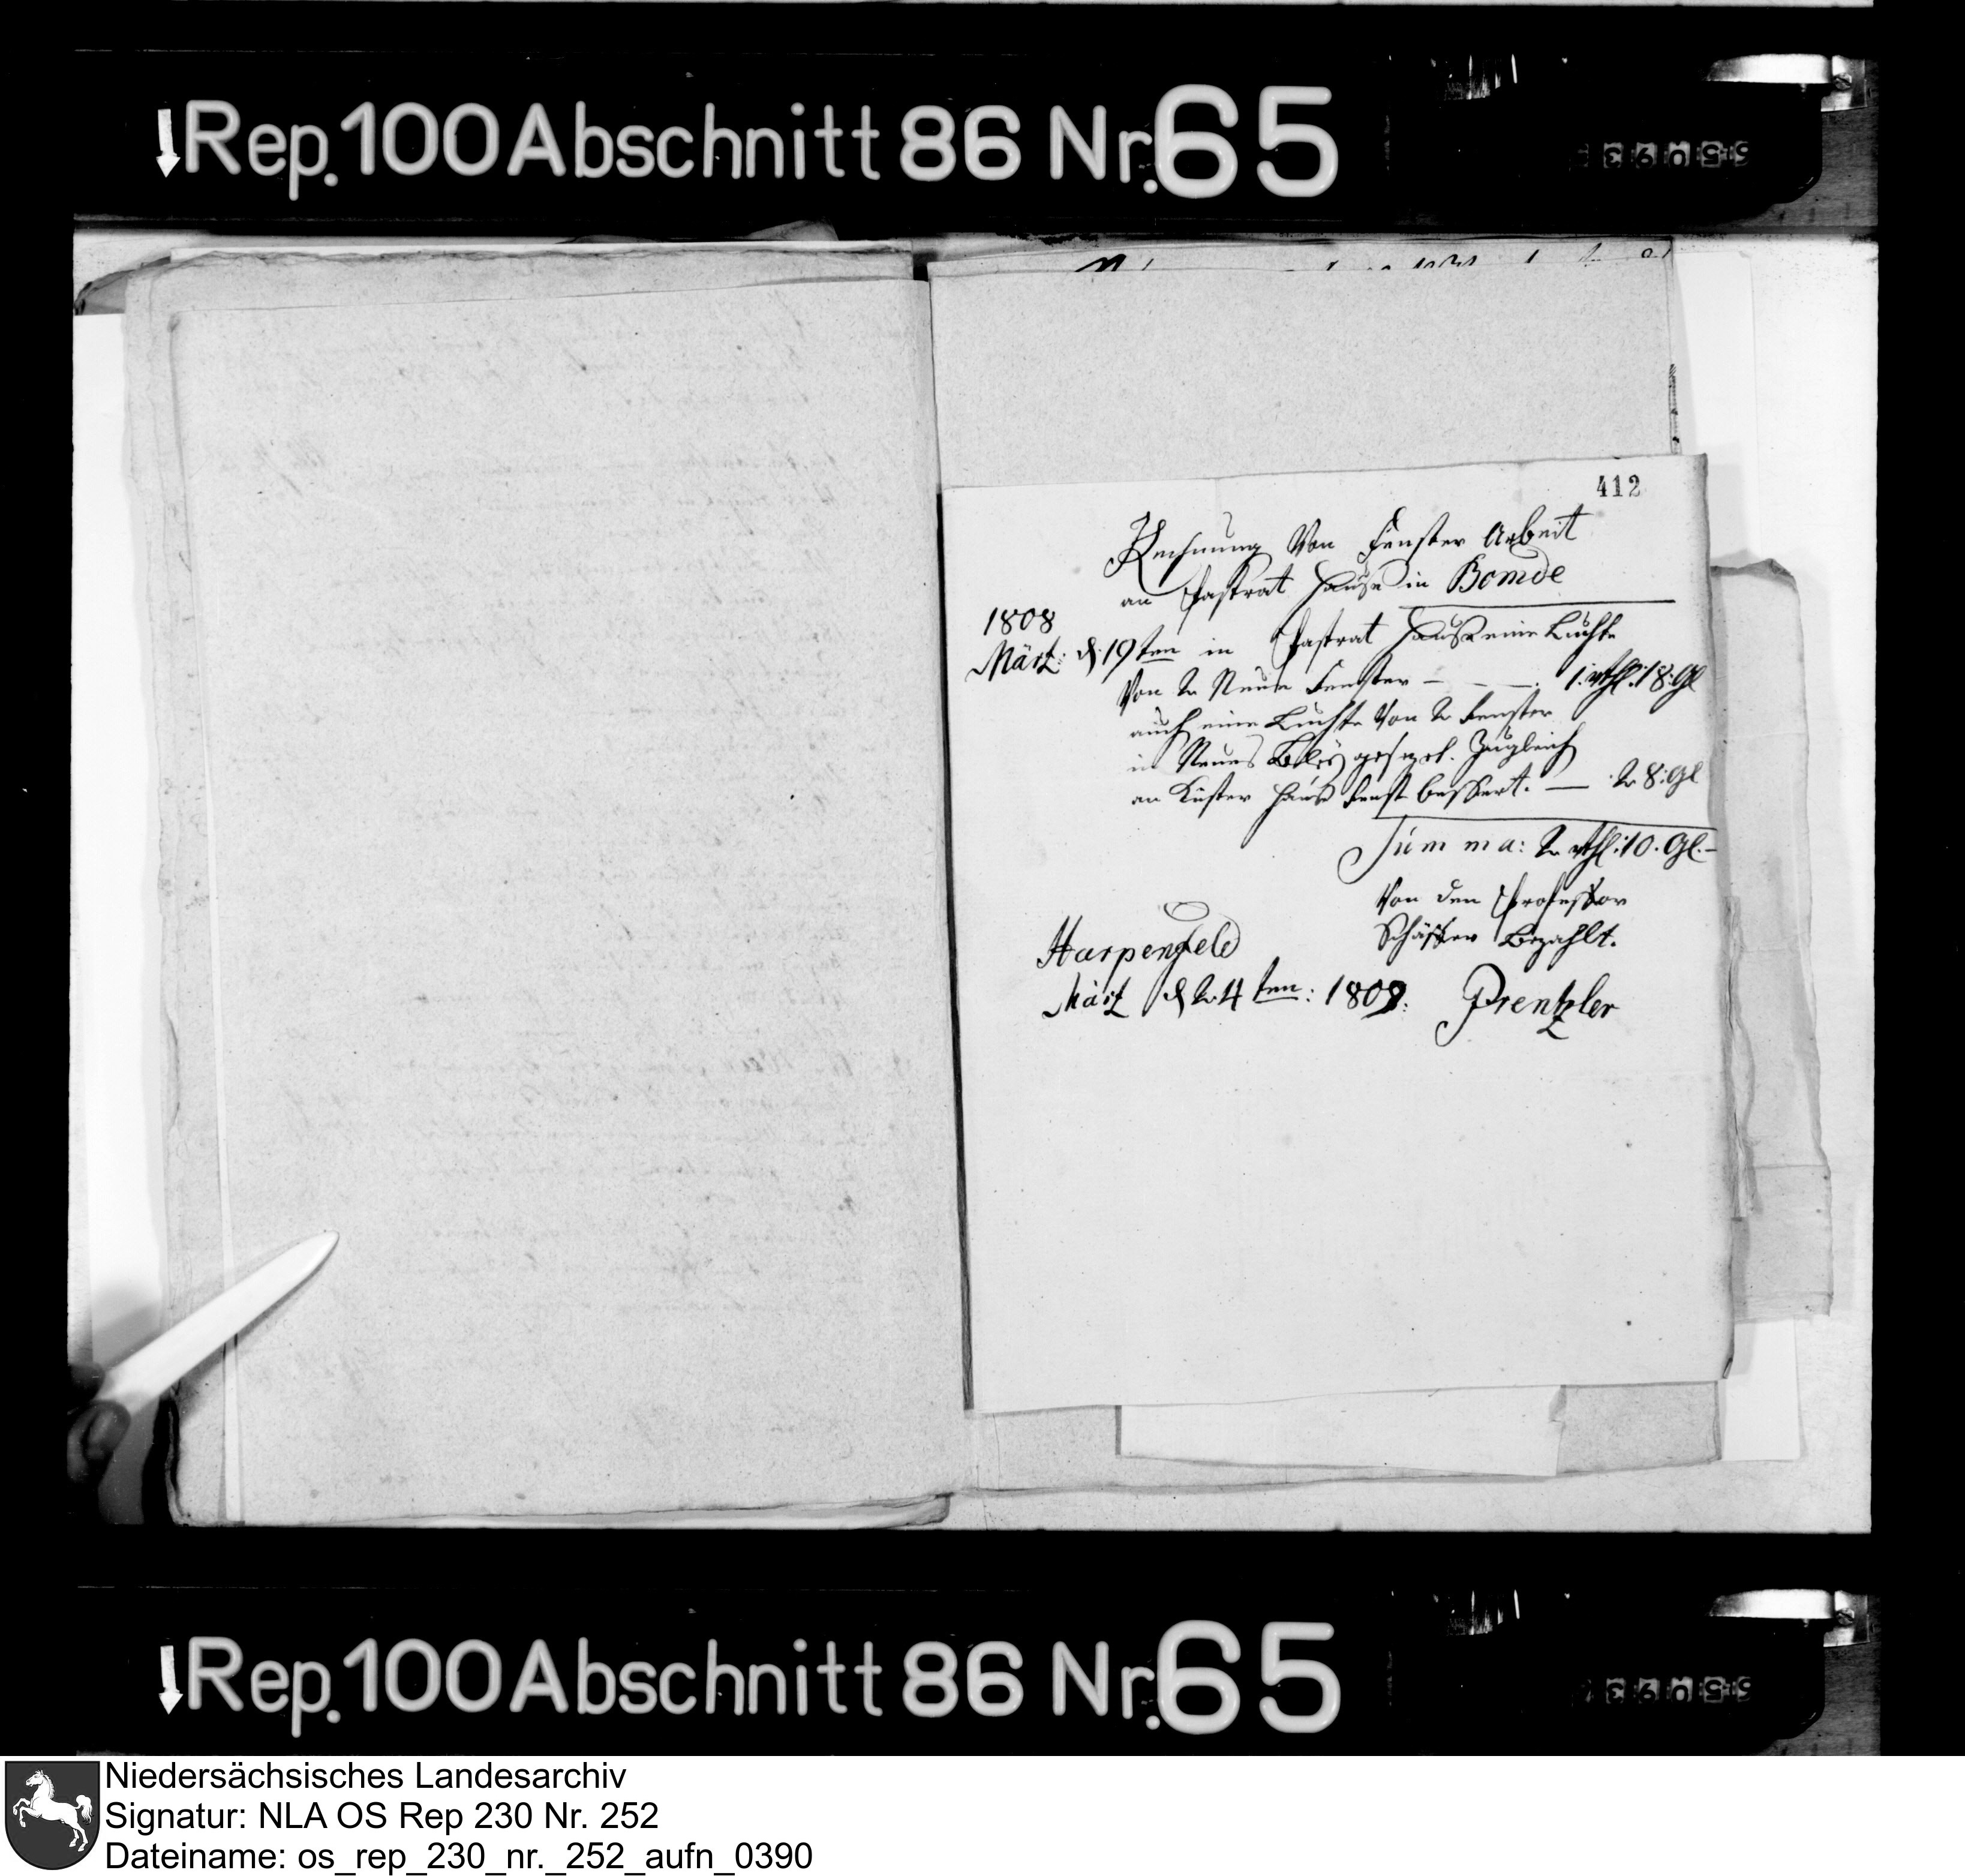 Rep. 100 Abschnitt 86 Nr. 65
412
Rechnung Von Fenster Arbeit
an Pastrat Hause in Bomde
1808
Märtz: d. 19ten in Pastrat Hause eine Luchte
Von 2 Neue Fenster — — . 1: rthl: 18: gl
auch eine Luchte Von 2 Fenster
in Neues Bley gesezt. Zugleich
an Küster Hause Fenst bessert. — 28: gl
Summa: 2 rthl: 10. gl. –
Von den Professor
Schäffer Bezahlt.
Harpenfeld
Märtz d 24ten: 1809: Prentzler
Rep. 100 Abschnitt 86 Nr. 65
Niedersächsisches Landesarchiv
Signatur: NLA OS Rep 230 Nr. 252
Dateiname: os_rep_230_nr._252_aufn_0390